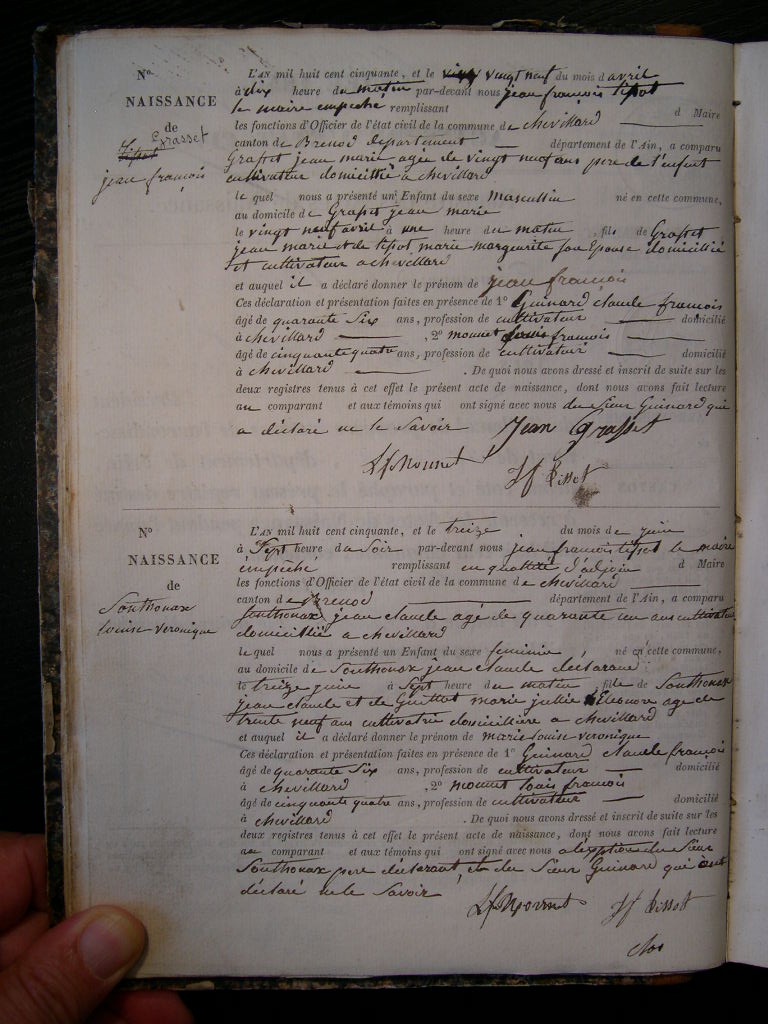 N°
NAISSANCE
de
Grasset
tissot
jean françois
L'AN mil huit cent cinquante, et le vingt neuf du mois d avril
à dix heure du matin par-devant nous jean françois tissot
le maire empeché remplissant
les fonctions d'Officier de l'état civil de la commune de chevillard d Maire
canton de Brenod departement département de l'Ain, a comparu
Grasset jean marie agée de vingt neuf ans pere de l'enfant
cultivateur domicillié a chevillard
le quel nous a présenté un Enfant du sexe masculin né en cette commune,
au domicile de Grasset jean marie
le vingt neuf avril à une heure du matin, fils de Grasset
jean marie et de tissot marie marguerite son Epouse domicillié
et cultivateur a chevillard
et auquel il a déclaré donner le prénom de jean francois
Ces déclaration et présentation faites en présence de 1° Guinard claude francois
âgé de quarante Six ans, profession de cultivateur domicilié
à chevillard , 2° monnet louis francois
âgé de cinquante quatre ans, profession de cultivateur domicilié
à chevillard . De quoi nous avons dressé et inscrit de suite sur les
deux registres tenus à cet effet le présent acte de naissance, dont nous avons fait lecture
au comparant et aux témoins qui ont signé avec nous du Sieur Guinard qui
a déclaré ne le Savoir Jean Grasset
L f Monnet J f tissot
N°
NAISSANCE
de
Southonax
louise veronique
L'AN mil huit cent cinquante, et le treize du mois de juin
à Sept heure du Soir par-devant nous jean francois tissot le maire
empeché remplissant en qualité d'adjoin d Maire
les fonctions d'Officier de l'état civil de la commune de chevillard
canton de Brenod département de l'Ain, a comparu
Southonax jean claude agé de quarante un ans cultivateur
domicillié a chevillard
le quel nous a présenté un Enfant du sexe feminin né en cette commune,
au domicile de Southonax jean claude déclarant
le treize juin à Sept heure du matin, fille de Southonax
jean claude et de Guillot marie jullie Eleonore age de
trente neuf ans cultivatrice domicillière a chevillard
et auquel il a déclaré donner le prénom de marie louise veronique
Ces déclaration et présentation faites en présence de 1° Guinard claude francois
âgé de quarante Six ans, profession de cultivateur domicilié
à chevillard , 2° monnet louis francois
âgé de cinquante quatre ans, profession de cultivateur domicilié
à chevillard . De quoi nous avons dressé et inscrit de suite sur les
deux registres tenus à cet effet le présent acte de naissance, dont nous avons fait lecture
au comparant et aux témoins qui ont signé avec nous a lexption du Sieur
Southonax pere déclarant, et du Sieur Guinard qui ont
déclaré ne le Savoir
L f Monnet J f tissot
clos